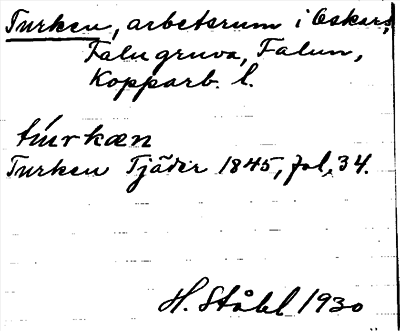 Turken, arbetsrum i Oskars,
Falu gruva, Falun,
Kopparb. l.
túrkæn
Turken Tjäder 1845, fol. 34.
H. Ståhl 1930